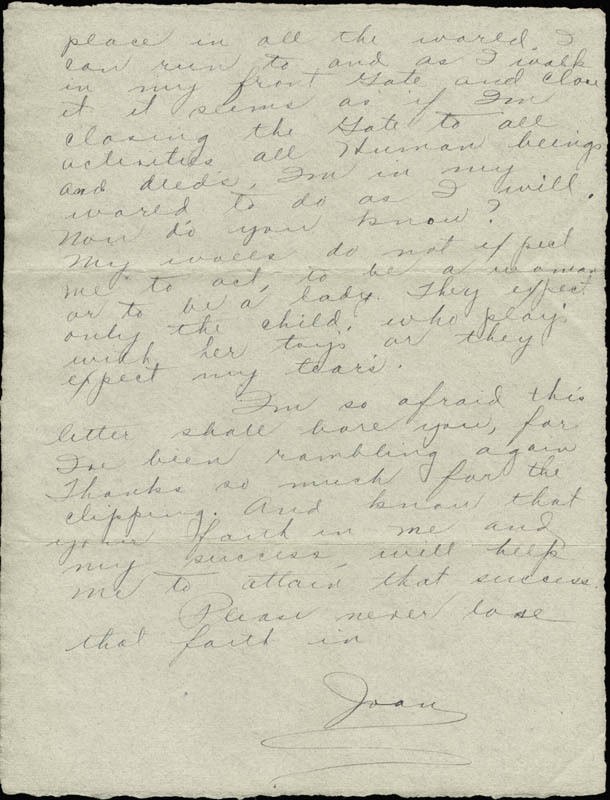 place in all the world. I
can run to and as I walk
in my front Gate and close
it it seems as if I'm
closing the Gate to all
activities all Human beings
and deed's, I'm in my
world to do as I will.
Now do you know?
My walls do not expect
me to act, to be a woman
or to be a lady. They expect
only the child, who play's
with her toy's or they
expect my tear's.
I'm so afraid this
letter shall bore you, for
I've been rambling again
Thanks so much for the
clipping. And know that
your faith in me and
my success, will help
me to attain that success.
Please never lose
that faith in
Joan